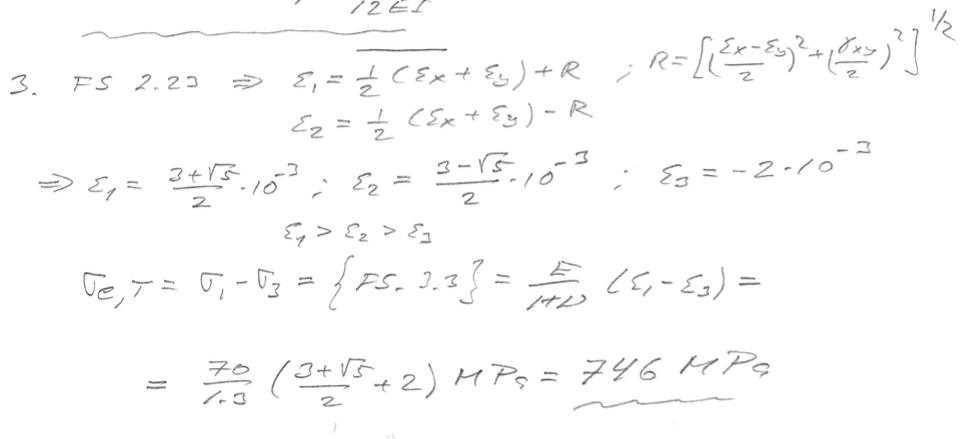 12EI
3. FS 2.23 ⇒ ε₁ = 1/2 (εx + εy) + R ; R = [((εx-εy)/2)² + (γxy/2)²]^1/2
ε₂ = 1/2 (εx + εy) - R
⇒ ε₁ = (3+√5)/2 · 10⁻³ ; ε₂ = (3-√5)/2 · 10⁻³ ; ε₃ = -2 · 10⁻³
ε₁ > ε₂ > ε₃
σe,T = σ₁ - σ₃ = {FS. 3.3} = E/(1+ν) (ε₁ - ε₃) =
= 70/1.3 ((3+√5)/2 + 2) MPa = 746 MPa